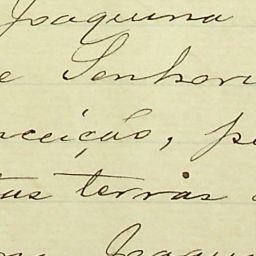 Joaquina
e Senhori
nceição, pe
tas terras
Joaqu